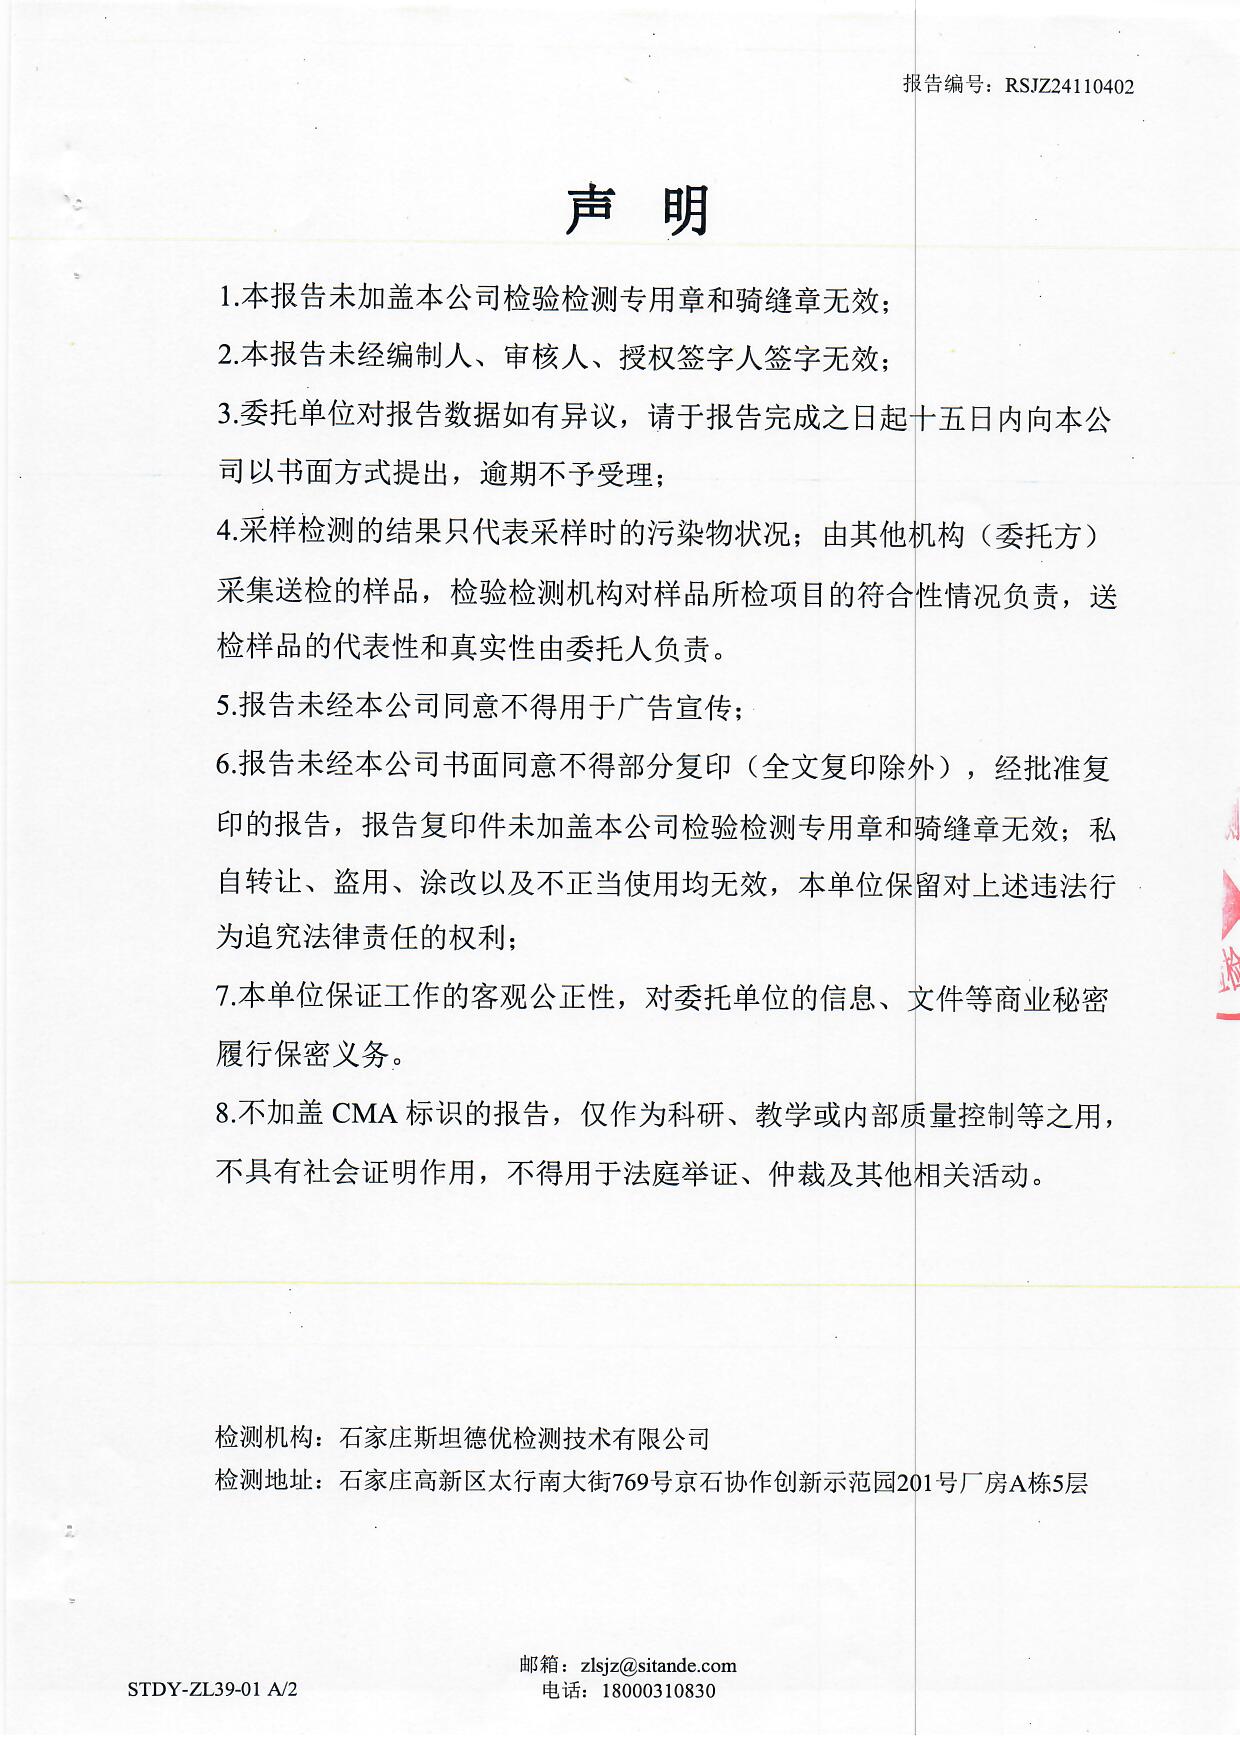 报告编号：RSJZ24110402
声 明
1.本报告未加盖本公司检验检测专用章和骑缝章无效；
2.本报告未经编制人、审核人、授权签字人签字无效；
3.委托单位对报告数据如有异议，请于报告完成之日起十五日内向本公
司以书面方式提出，逾期不予受理；
4.采样检测的结果只代表采样时的污染物状况；由其他机构（委托方）
采集送检的样品，检验检测机构对样品所检项目的符合性情况负责，送
检样品的代表性和真实性由委托人负责。
5.报告未经本公司同意不得用于广告宣传；
6.报告未经本公司书面同意不得部分复印（全文复印除外），经批准复
印的报告，报告复印件未加盖本公司检验检测专用章和骑缝章无效；私
自转让、盗用、涂改以及不正当使用均无效，本单位保留对上述违法行
为追究法律责任的权利；
7.本单位保证工作的客观公正性，对委托单位的信息、文件等商业秘密
履行保密义务。
8.不加盖 CMA 标识的报告，仅作为科研、教学或内部质量控制等之用，
不具有社会证明作用，不得用于法庭举证、仲裁及其他相关活动。
检测机构：石家庄斯坦德优检测技术有限公司
检测地址：石家庄高新区太行南大街769号京石协作创新示范园201号厂房A栋5层
邮箱：zlsjz@sitande.com
电话：18000310830
STDY-ZL39-01 A/2